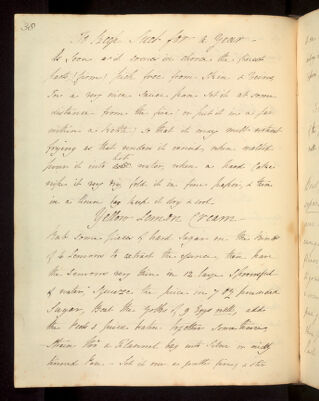 38
To keep Suet for a Year —
As Soon as it comes in choose the finest
part (firm) pick free from Skin & Veins
In a very nice Sauce pan set it at some
distance from the fire; or put it in a jar
within a kettle so that it may melt without
frying as that renders it rancid, when melted
pour it into water, when a hard Cake
wipe it very dry, fold it in fine paper, & then
in a linen bag keep it dry & cool.
Yellow Lemon Cream —
Rub some pieces of hard Sugar on the rinds
of 4 Lemons to extract the essence, then pare
the Lemons very thin in 12 large Spoonsful
of water, Squeeze the juice in 7 oz pounded
Sugar, Beat the Yolks of 9 Eggs well, add
the Peels & juice beaten together Sometime,
Strain thro' a Flannel bag into Silver or nicely
tinned Pan. — Set it over a gentle fire, & stir